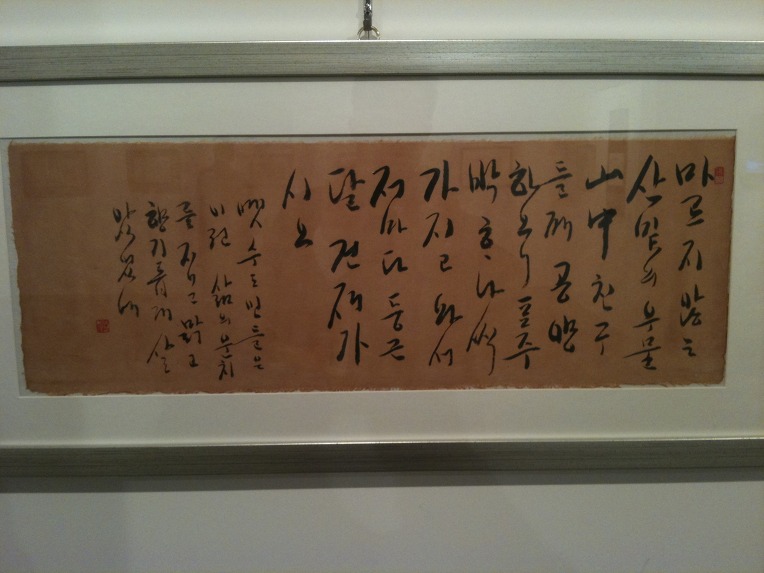 마르지 않는
산밑의 우물
山中 친구
들께 공양
하오니 표주
박 하나씩
가지고 와서
저마다 둥근
달 건져가
시오
옛 수도인들은
이런 삶의 운치
를 지니고 맑고
향기롭게 살